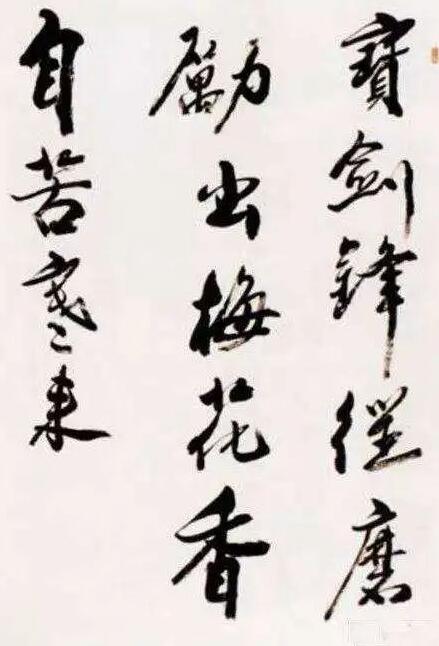 寶劍鋒從磨
勵出梅花香
自苦寒来